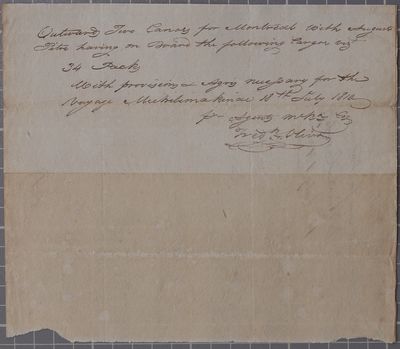 Outward Two Canoes for Montreal With August
Pitre having on Board the following Cargoe viz
34 Packs
With provisions & Agrès necessary for the
Voyage Michilimakinac 18th July 1810
for Agents